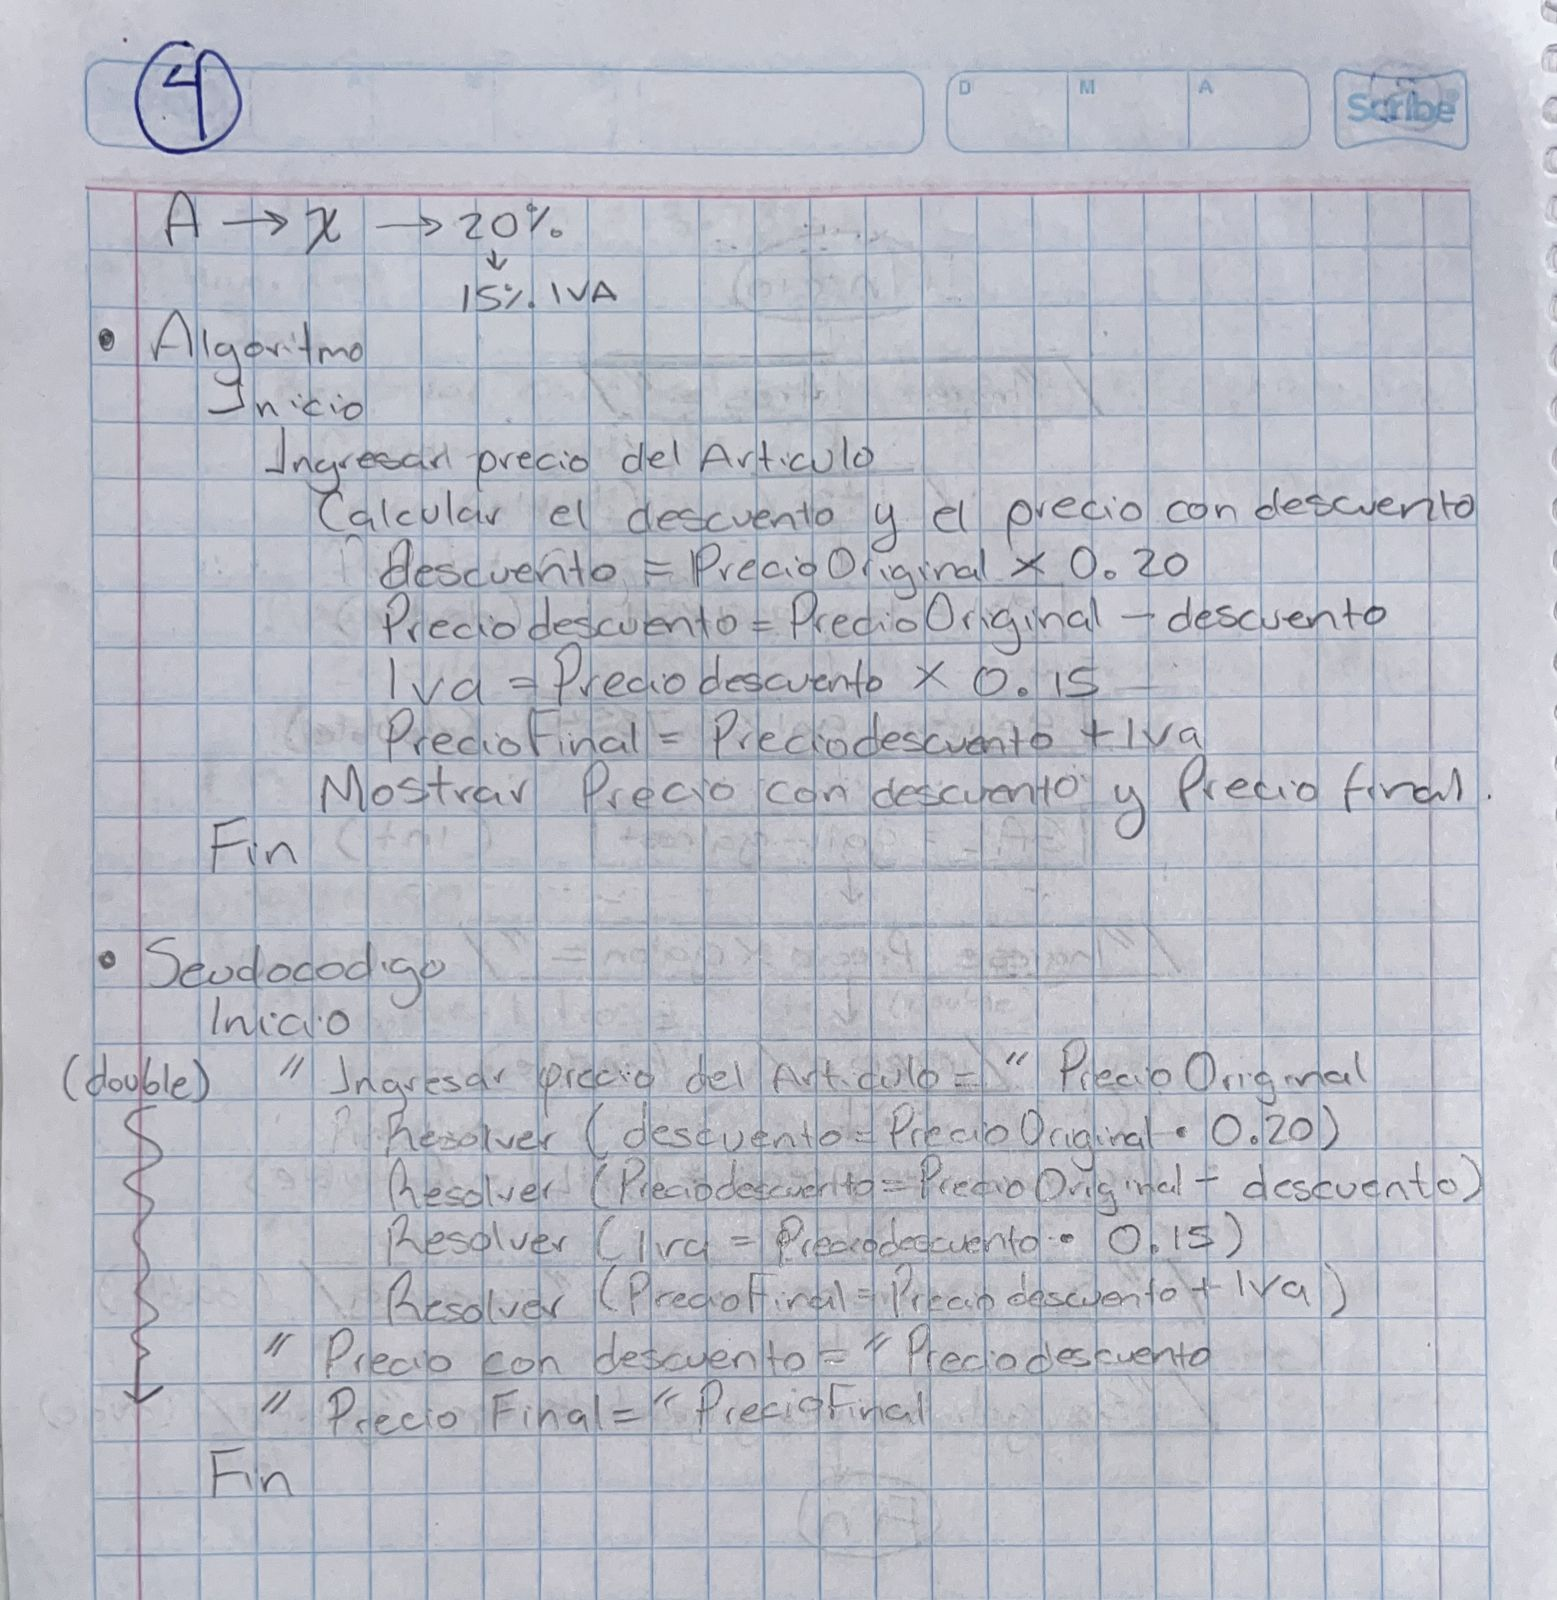 4
D M A
Scribe
A → x → 20%
↓
15% IVA
• Algoritmo
Inicio
Ingresar precio del Articulo
Calcular el descuento y el precio con descuento
descuento = PrecioOriginal × 0.20
Preciodescuento = PrecioOriginal - descuento
Iva = Preciodescuento × 0.15
PrecioFinal = Preciodescuento + Iva
Mostrar Precio con descuento y Precio final.
Fin
• Seudocodigo
Inicio
(double) " Ingresar precio del Articulo = " PrecioOriginal
Resolver (descuento = PrecioOriginal • 0.20)
Resolver (Preciodescuento = PrecioOriginal - descuento)
Resolver (Iva = Preciodescuento • 0.15)
Resolver (PrecioFinal = Preciodescuento + Iva)
" Precio con descuento = " Preciodescuento
" Precio Final = " PrecioFinal
Fin